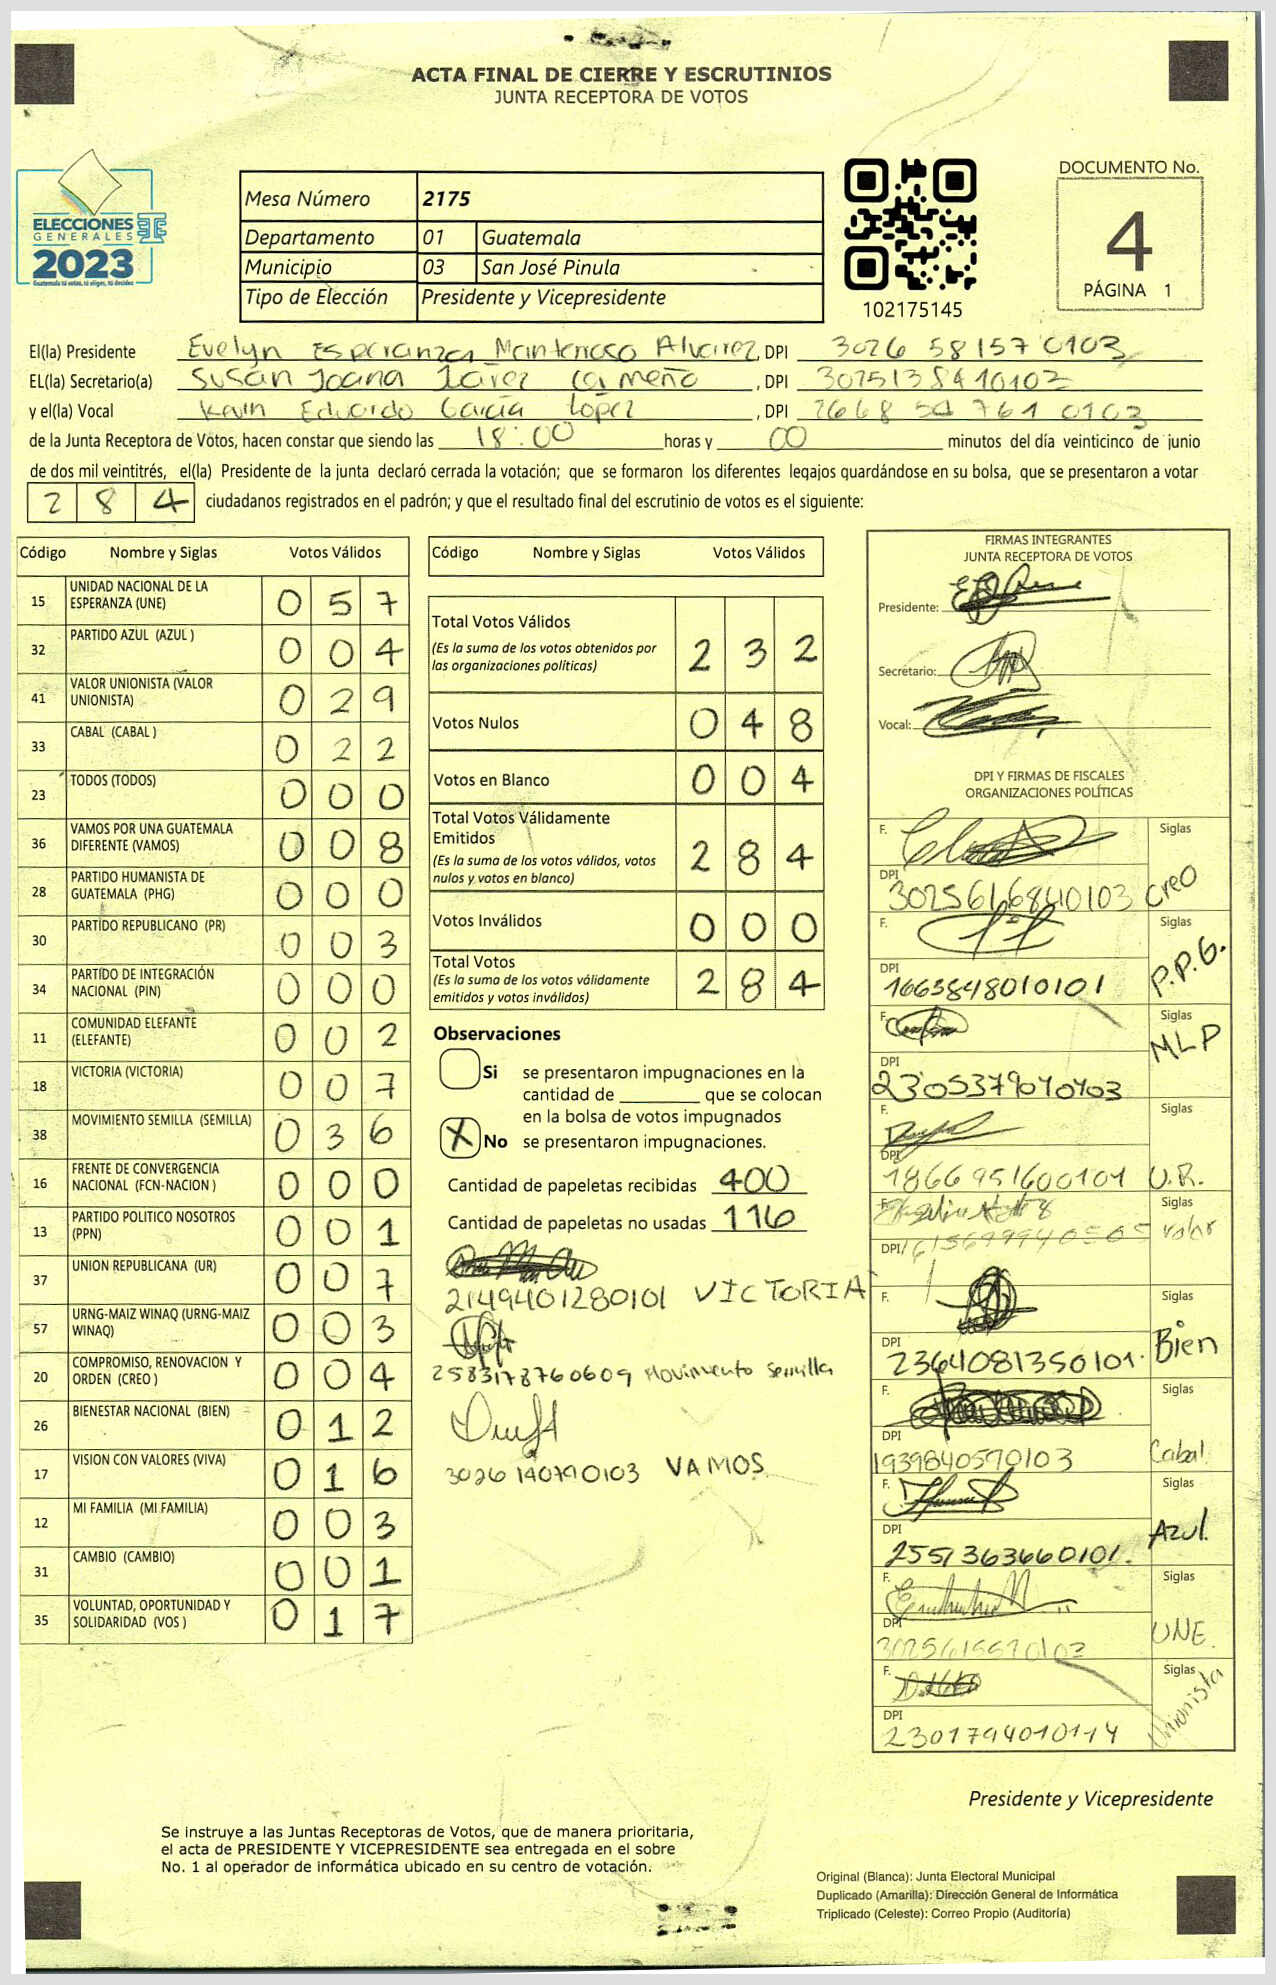 ACTA FINAL DE CIERRE Y ESCRUTINIOS
JUNTA RECEPTORA DE VOTOS
ELECCIONES
GENERALES
2023
Guatemala tú votas, tú eliges, tú decides
Mesa Número 2175
Departamento 01 Guatemala
Municipio 03 San José Pinula
Tipo de Elección Presidente y Vicepresidente
102175145
DOCUMENTO No.
4
PÁGINA 1
El(la) Presidente Evelyn Esperanza Monterroso Alvarez, DPI 3026 58157 0103
EL(la) Secretario(a) Susan Joana, DPI 3025138410103
y el(la) Vocal Kevin Eduardo García López, DPI 2668 54 761 0103
de la Junta Receptora de Votos, hacen constar que siendo las 18:00 horas y 00 minutos del día veinticinco de junio
de dos mil veintitrés, el(la) Presidente de la junta declaró cerrada la votación; que se formaron los diferentes legajos guardándose en su bolsa, que se presentaron a votar
2 8 4 ciudadanos registrados en el padrón; y que el resultado final del escrutinio de votos es el siguiente:
Código Nombre y Siglas Votos Válidos
15 UNIDAD NACIONAL DE LA ESPERANZA (UNE) 0 5 7
32 PARTIDO AZUL (AZUL ) 0 0 4
41 VALOR UNIONISTA (VALOR UNIONISTA) 0 2 9
33 CABAL (CABAL ) 0 2 2
23 TODOS (TODOS) 0 0 0
36 VAMOS POR UNA GUATEMALA DIFERENTE (VAMOS) 0 0 8
28 PARTIDO HUMANISTA DE GUATEMALA (PHG) 0 0 0
30 PARTIDO REPUBLICANO (PR) 0 0 3
34 PARTIDO DE INTEGRACIÓN NACIONAL (PIN) 0 0 0
11 COMUNIDAD ELEFANTE (ELEFANTE) 0 0 2
18 VICTORIA (VICTORIA) 0 0 7
38 MOVIMIENTO SEMILLA (SEMILLA) 0 3 6
16 FRENTE DE CONVERGENCIA NACIONAL (FCN-NACION ) 0 0 0
13 PARTIDO POLITICO NOSOTROS (PPN) 0 0 1
37 UNION REPUBLICANA (UR) 0 0 7
57 URNG-MAIZ WINAQ (URNG-MAIZ WINAQ) 0 0 3
20 COMPROMISO, RENOVACION Y ORDEN (CREO ) 0 0 4
26 BIENESTAR NACIONAL (BIEN) 0 1 2
17 VISION CON VALORES (VIVA) 0 1 6
12 MI FAMILIA (MI FAMILIA) 0 0 3
31 CAMBIO (CAMBIO) 0 0 1
35 VOLUNTAD, OPORTUNIDAD Y SOLIDARIDAD (VOS ) 0 1 7
Código Nombre y Siglas Votos Válidos
Total Votos Válidos
(Es la suma de los votos obtenidos por
las organizaciones politicas) 2 3 2
Votos Nulos 0 4 8
Votos en Blanco 0 0 4
Total Votos Válidamente
Emitidos
(Es la suma de los votos válidos, votos
nulos y votos en blanco) 2 8 4
Votos Inválidos 0 0 0
Total Votos
(Es la suma de los votos válidamente
emitidos y votos inválidos) 2 8 4
Observaciones
Si se presentaron impugnaciones en la
cantidad de ________ que se colocan
en la bolsa de votos impugnados
X No se presentaron impugnaciones.
Cantidad de papeletas recibidas 400
Cantidad de papeletas no usadas 116
2149401280101 VICTORIA
2583178760609 Movimiento Semilla
3026140790103 VAMOS
FIRMAS INTEGRANTES
JUNTA RECEPTORA DE VOTOS
Presidente:
Secretario:
Vocal:
DPI Y FIRMAS DE FISCALES
ORGANIZACIONES POLÍTICAS
F. Siglas
DPI 3025616840103 Creo
F. Siglas
DPI 1663848010101 P.P.G.
F. Siglas
DPI 2305379070403 MLP
F. Siglas
DPI 1866951600101 U.R.
F. Siglas
DPI Valor
F. Siglas
DPI 2364081350101. Bien
F. Siglas
DPI 1939840590103 Cabal.
F. Siglas
DPI 2551363660101. Azul.
F. Siglas
DPI 3025615570103 UNE.
F. Siglas
DPI 2301794010114 Unionista
Presidente y Vicepresidente
Se instruye a las Juntas Receptoras de Votos, que de manera prioritaria,
el acta de PRESIDENTE Y VICEPRESIDENTE sea entregada en el sobre
No. 1 al operador de informática ubicado en su centro de votación.
Original (Blanca): Junta Electoral Municipal
Duplicado (Amarilla): Dirección General de Informática
Triplicado (Celeste): Correo Propio (Auditoría)